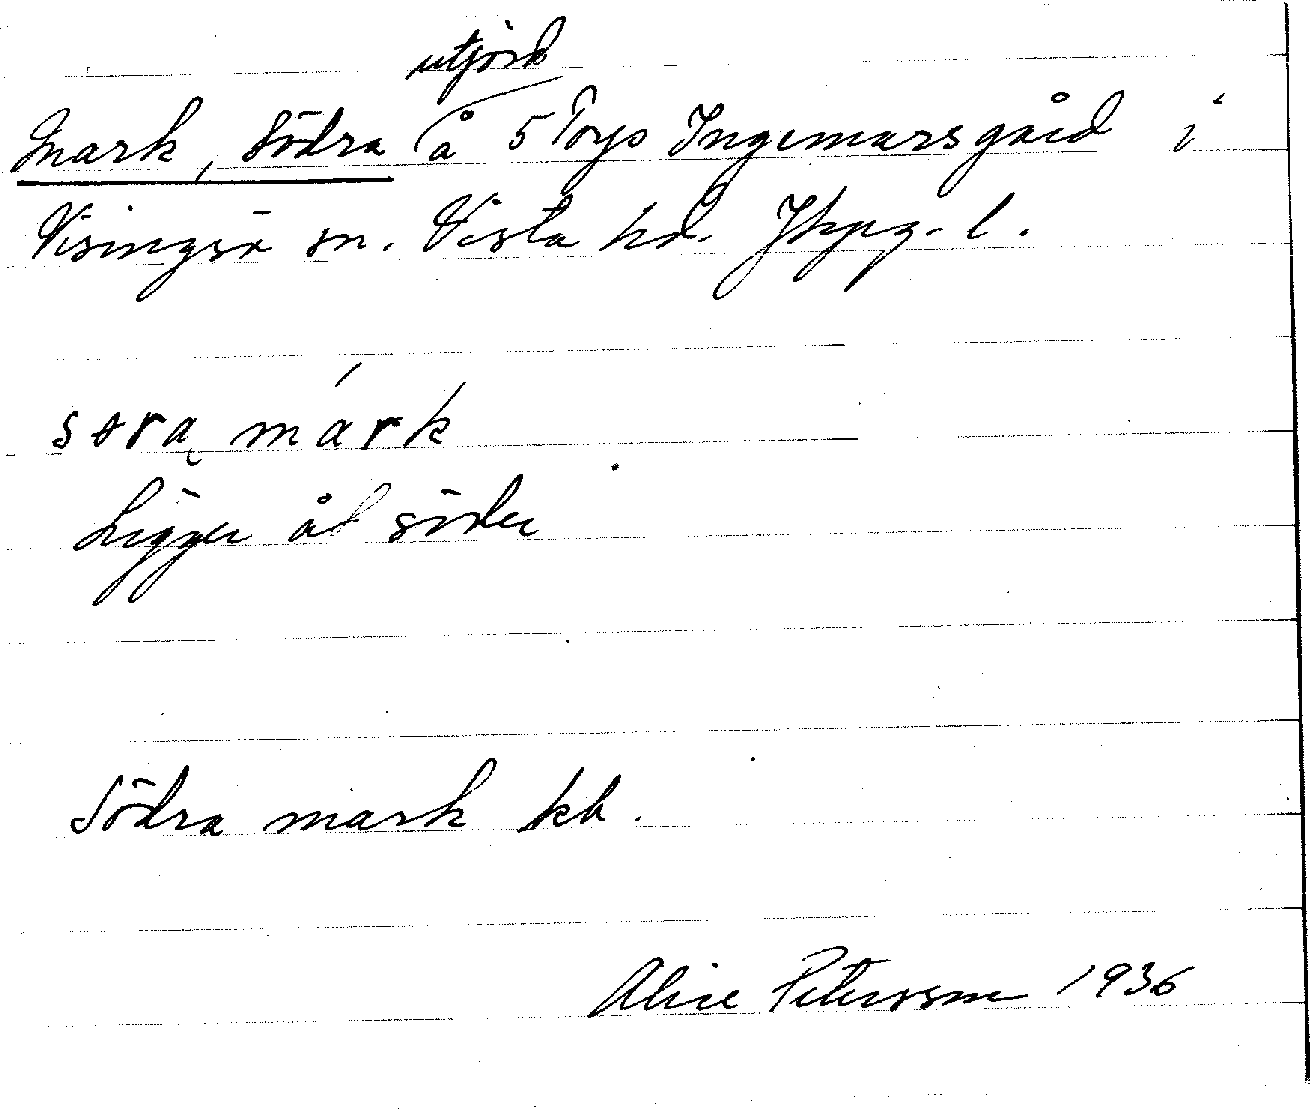 utjord
Mark, Södra å 5 Torps Ingemarsgård i
Visingsö sn. Vista hd. Jkpg. l.
mark
Ligger åt söder
Södra mark kb.
Alice Petersson 1936